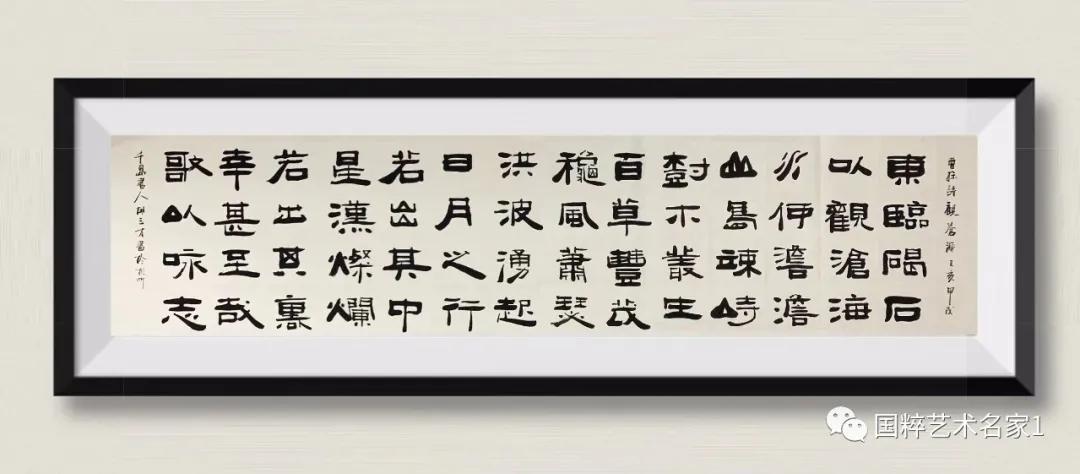 曹操詩觀蒼海
東臨碣石
以觀滄海
水何澹澹
山島竦峙
樹木叢生
百草豐茂
穐風蕭瑟
洪波湧起
日月之行
若出其中
星漢燦爛
若出其裏
幸甚至哉
歌以咏志
千島人三才書於杭州
国粹艺术名家1